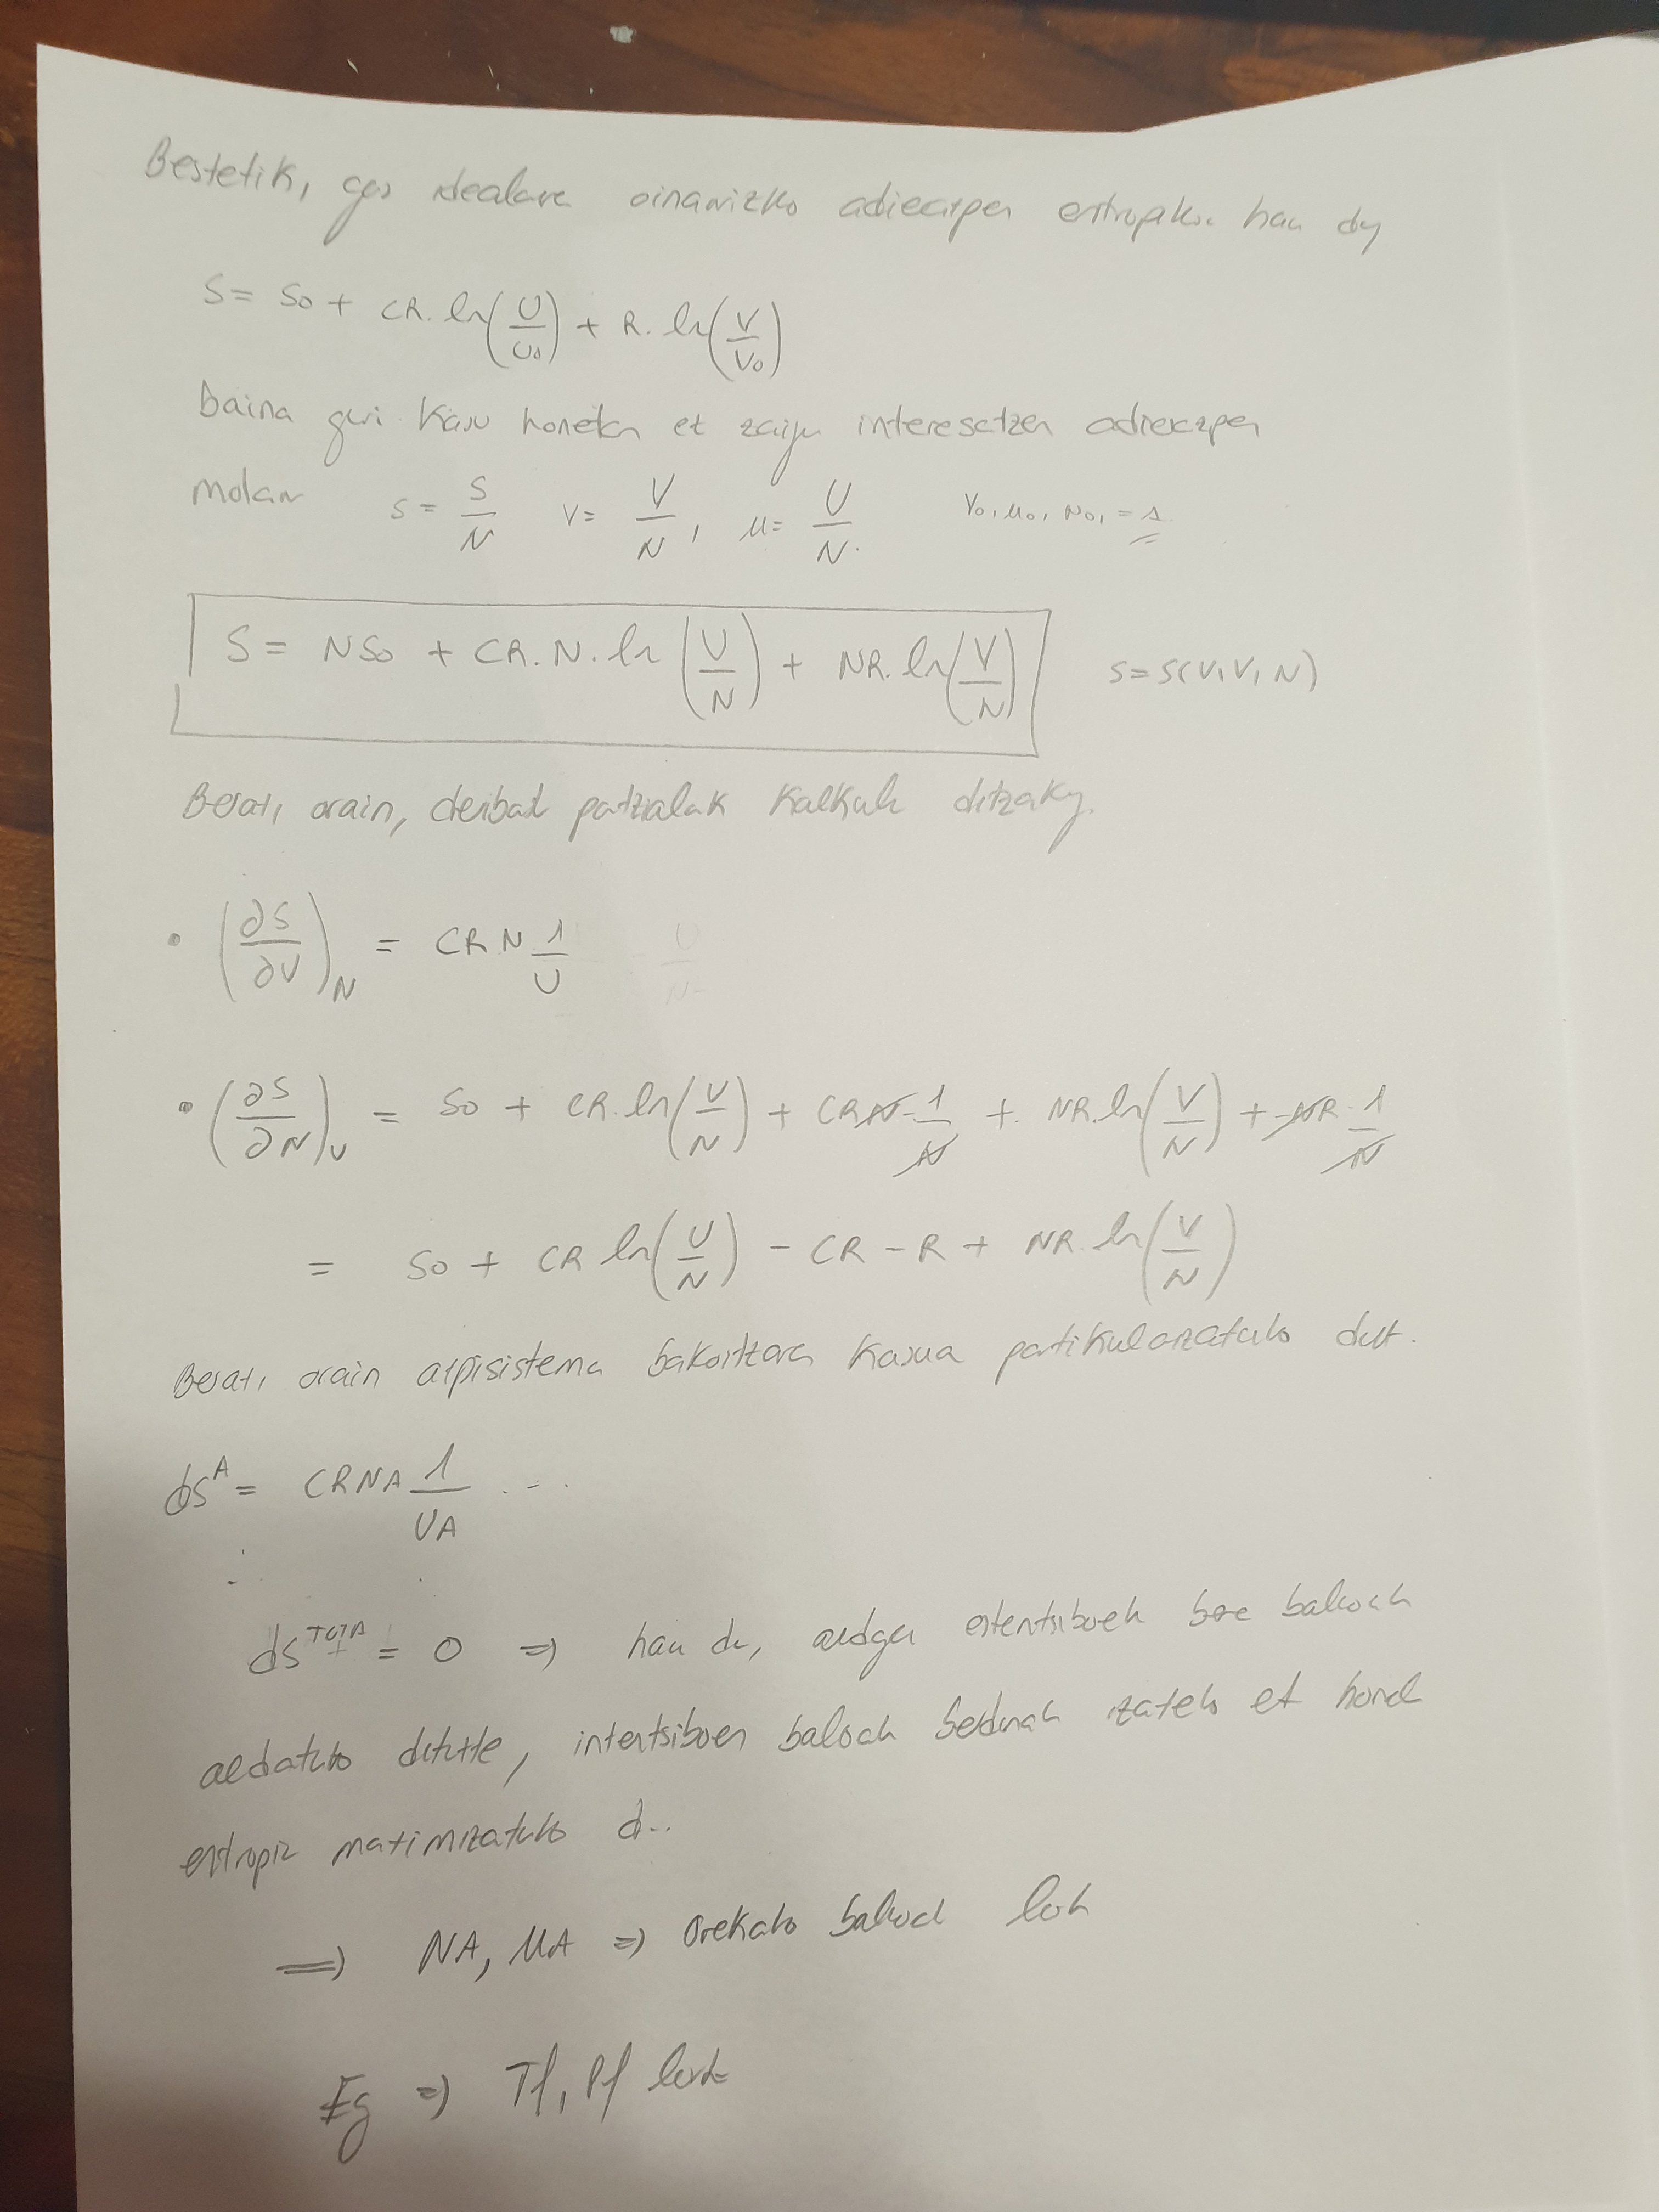 Bestetik, gas idealaren oinarrizko adierazpen entropikoa hau da,
S = So + CR. ln(U/Uo) + R. ln(V/Vo)
baina guri kasu honetan ez zaigu interesatzen adierazpen
molarra s = S/N v = V/N, u = U/N. Vo, uo, No, = 1
S = NSo + CR. N. ln(U/N) + NR. ln(V/N) S = S(U, V, N)
Beraz, orain, deribatu partzialak kalkula ditzakegu.
• (∂S/∂U)N = CRN 1/U
• (∂S/∂N)U = So + CR. ln(U/N) + CRN - 1/N + NR. ln(V/N) + -NR. 1/N
= So + CR ln(U/N) - CR - R + NR. ln(V/N)
Beraz, orain azpisistema bakoitzaren kasua partikularizatuko dut.
dS^A = CRNA 1/UA ...
dS^TOTA = 0 => hau da, aldagai estentsiboek bere balioak
aldatuko dituzte, intentsiboen balioak berdinak izateko eta honela
entropia maximizatuko d...
=> NA, UA => Orekako balioak lortu
Eg => Tf, Pf lortu